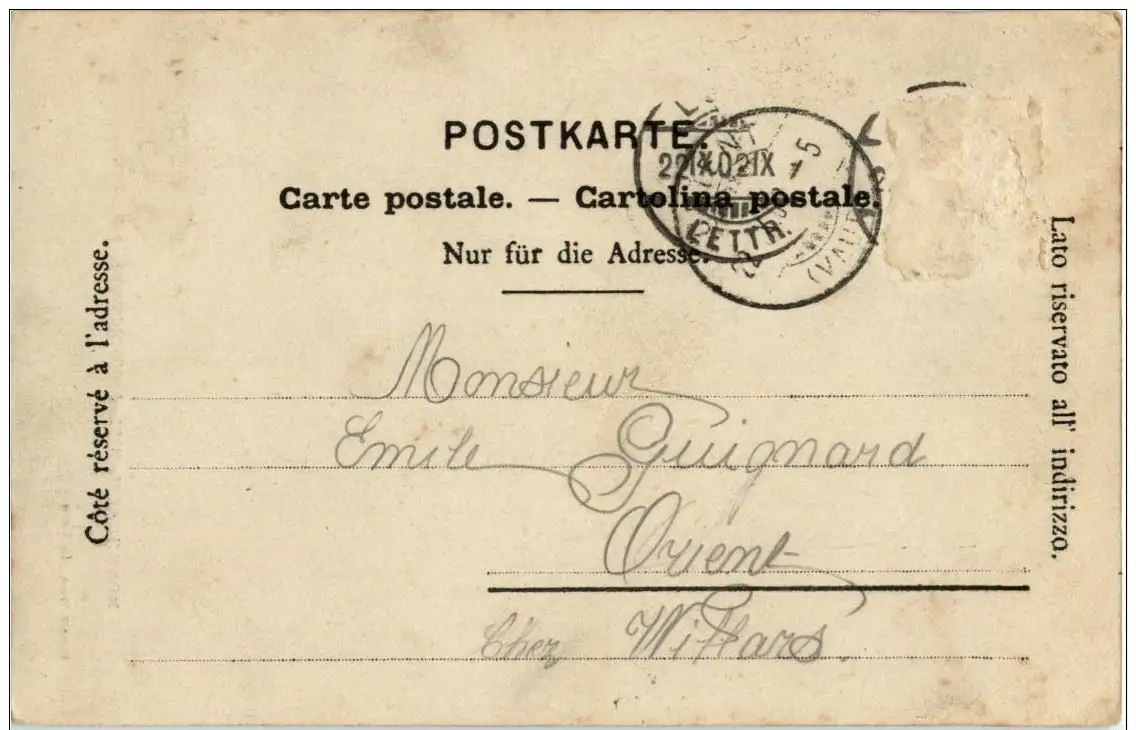 POSTKARTE.
Carte postale. — Cartolina postale.
Nur für die Adresse.
Côté réservé à l'adresse.
Lato riservato all' indirizzo.
22 IX 02
IX
5
LETTR.
(VAUD)
Monsieur
Emile Guignard
Orient
Chez Wittars.